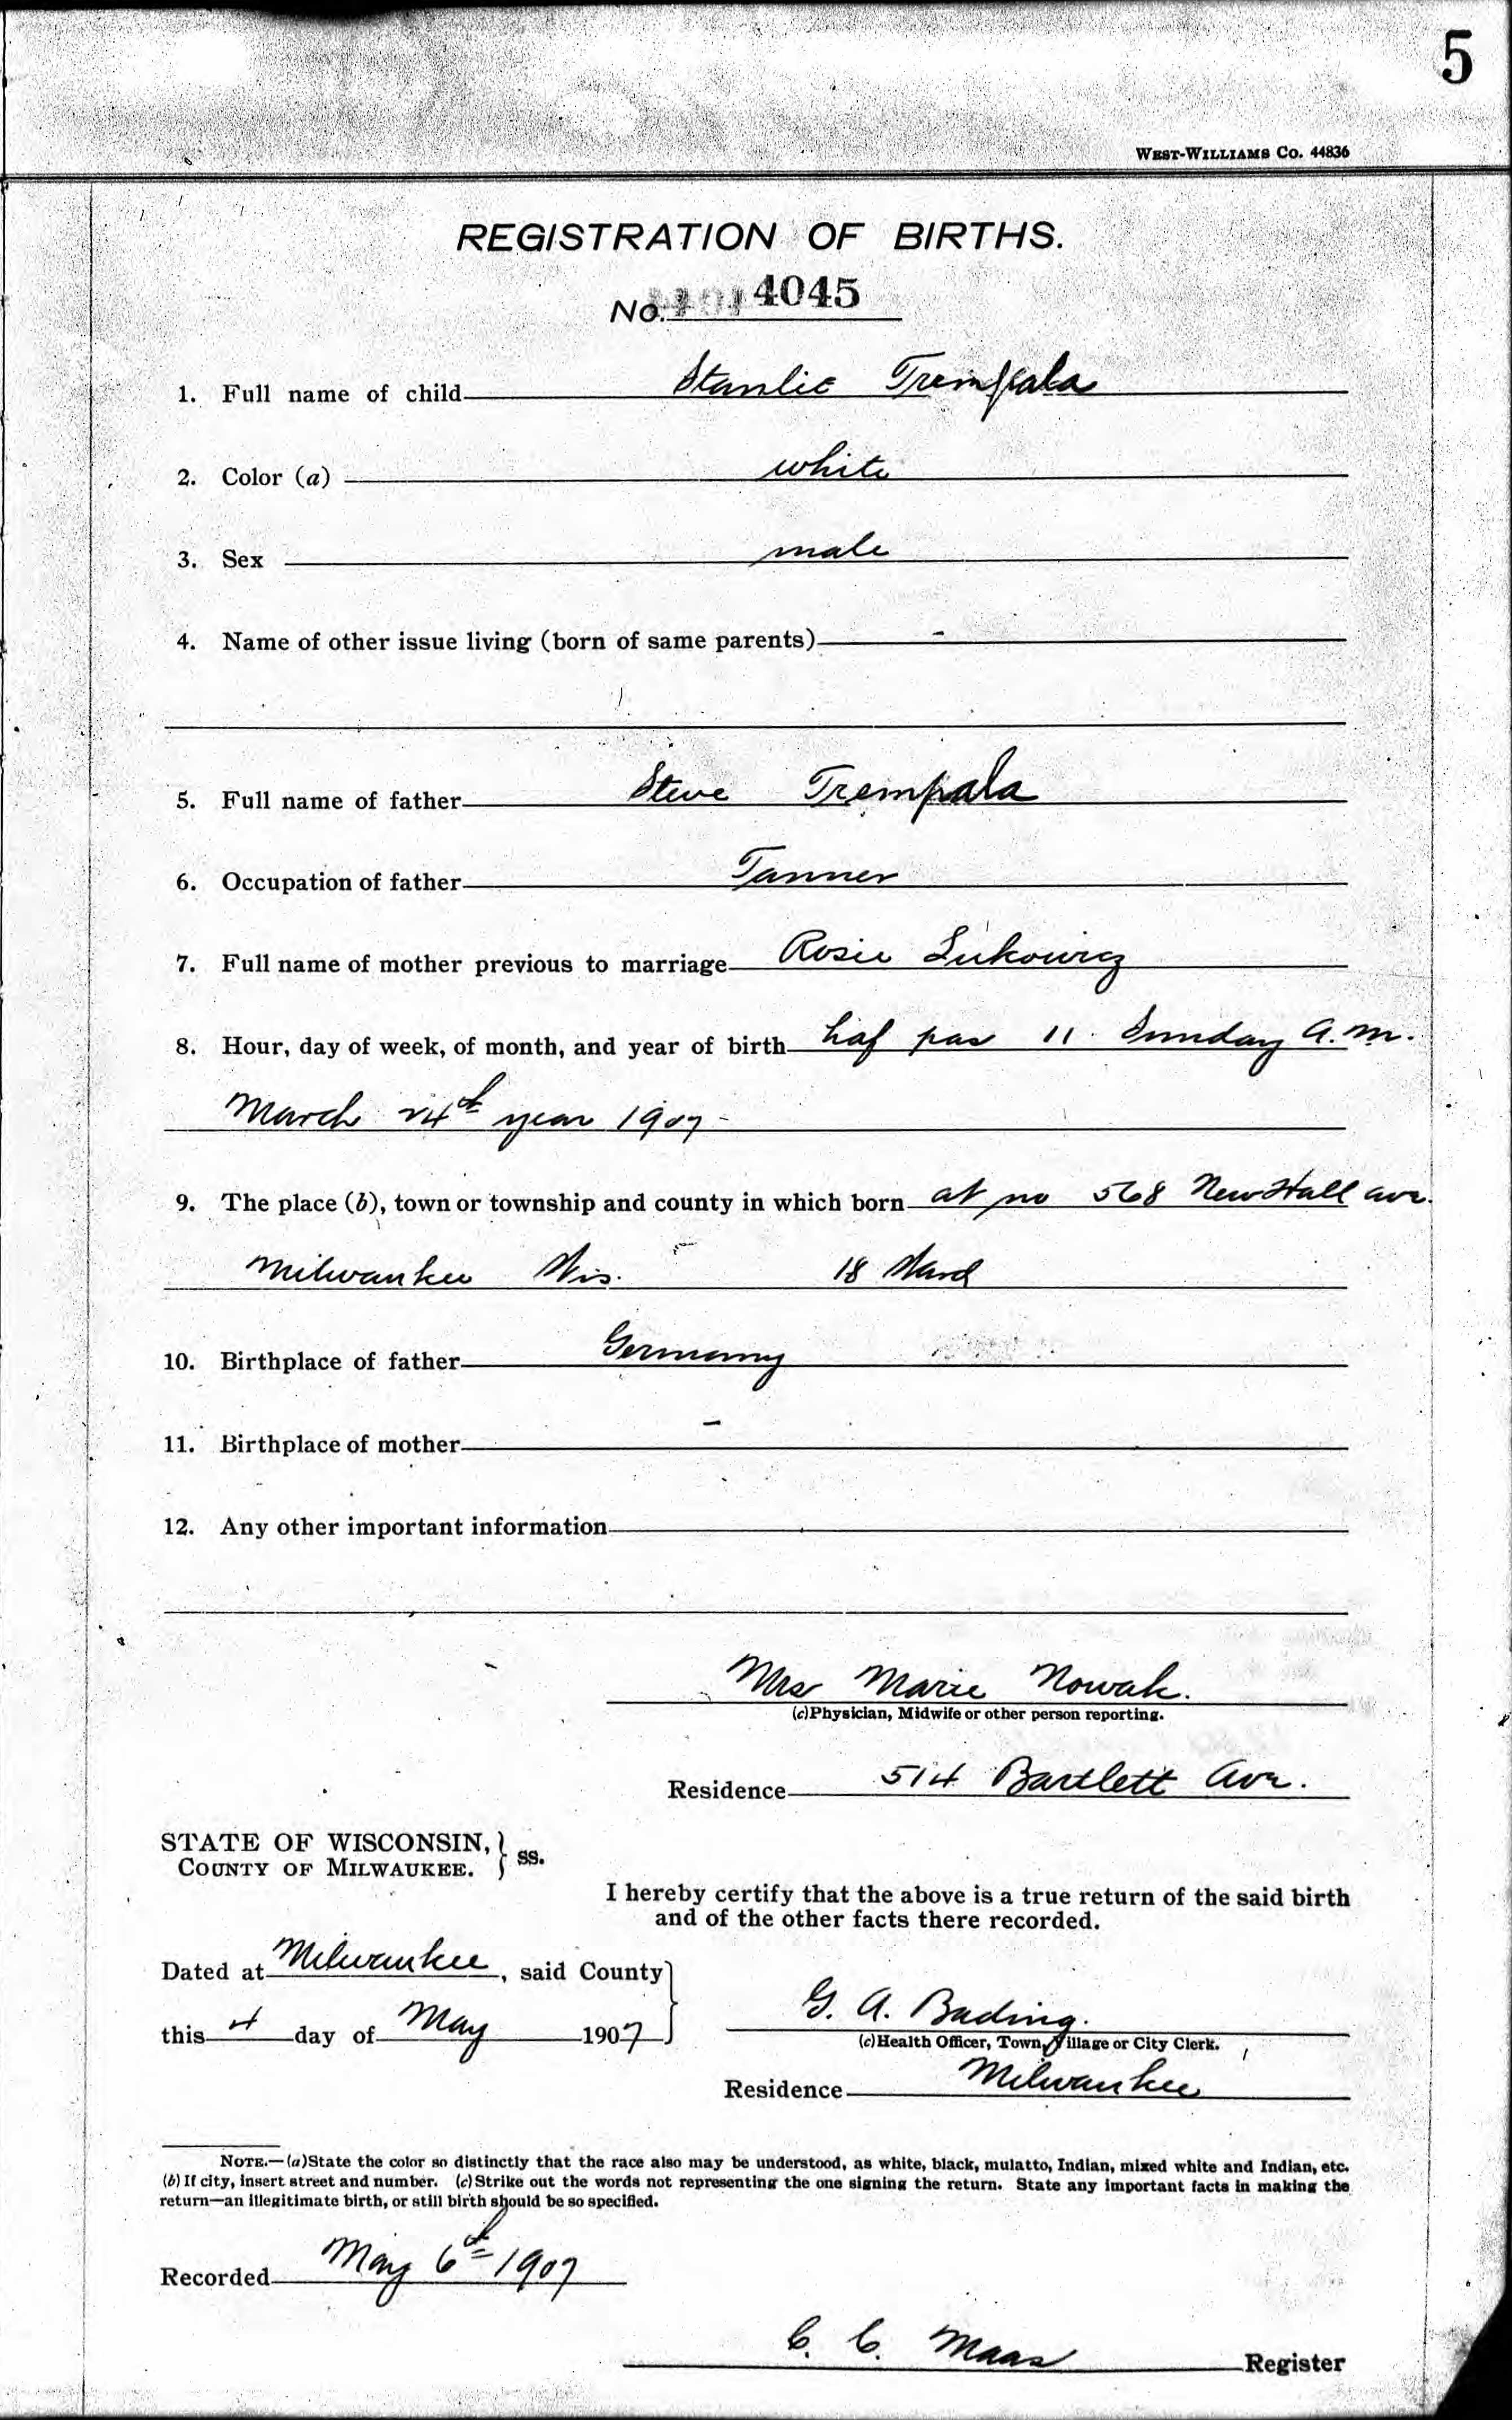 5
WEST-WILLIAMS CO. 44836
REGISTRATION OF BIRTHS.
No. 4045
1. Full name of child Stanlie Trempala
2. Color (a) white
3. Sex male
4. Name of other issue living (born of same parents) -
5. Full name of father Steve Trempala
6. Occupation of father Tanner
7. Full name of mother previous to marriage Rosie Lukowicz
8. Hour, day of week, of month, and year of birth haf pas 11 Sunday A.M.
March 24th year 1907-
9. The place (b), town or township and county in which born at no 568 NewHall ave.
Milwaukee Wis. 18 Ward
10. Birthplace of father Germany
11. Birthplace of mother -
12. Any other important information
Mrs Marie Nowak.
(c) Physician, Midwife or other person reporting.
Residence 514 Bartlett Ave.
STATE OF WISCONSIN, } ss.
COUNTY OF MILWAUKEE.
I hereby certify that the above is a true return of the said birth
and of the other facts there recorded.
Dated at Milwaukee, said County
this 4 day of May 1907
G. A. Bading.
(c) Health Officer, Town, Village or City Clerk.
Residence Milwaukee
NOTE.—(a) State the color so distinctly that the race also may be understood, as white, black, mulatto, Indian, mixed white and Indian, etc.
(b) If city, insert street and number. (c) Strike out the words not representing the one signing the return. State any important facts in making the
return—an illegitimate birth, or still birth should be so specified.
Recorded May 6th 1907
C. C. Maas Register